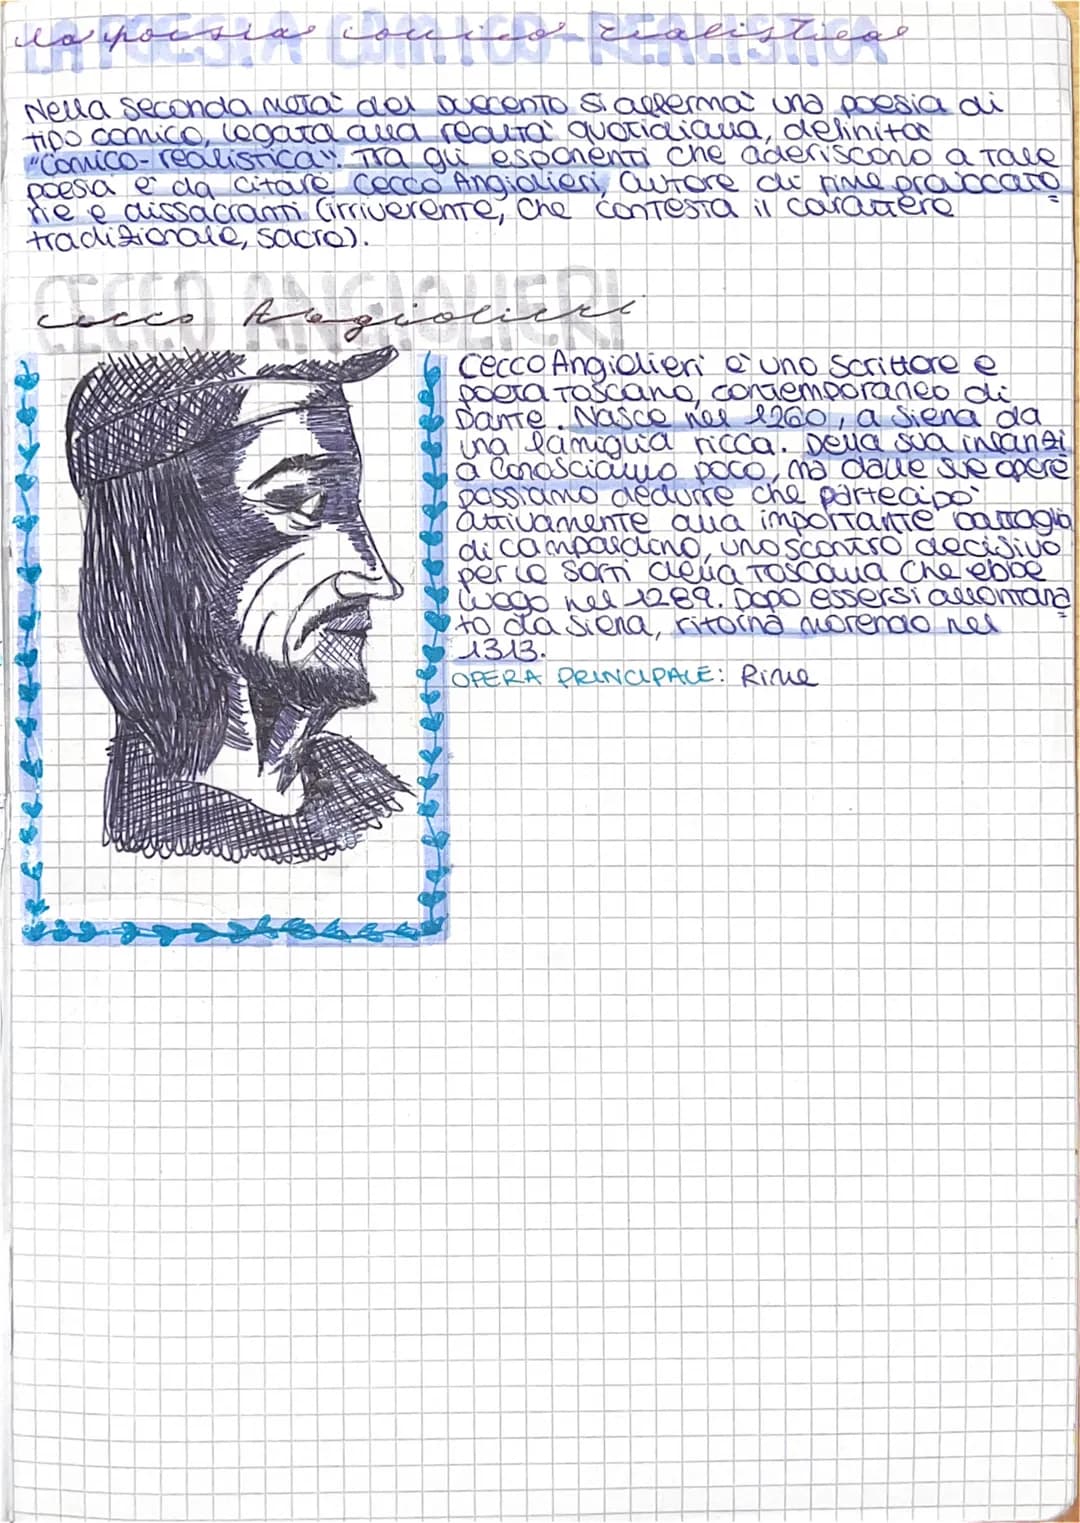 LA POESIA COMICO-REALISTICA
la poesia comico realistica
Nella seconda metà del Duecento si affermaì una poesia di
tipo comico, legata alla realtà quotidiana, definita
"Comico-realistica". Tra gli esponenti che aderiscono a tale
poesia è da citare Cecco Angiolieri, autore di rime provocato
rie e dissacranti (irriverente, che contesta il carattere
tradizionale, sacro).
CECCO ANGIOLIERI
cecco Angiolieri
Cecco Angiolieri è uno scrittore e
poeta toscano, contemporaneo di
Dante. Nasce nel 1260, a Siena da
una famiglia ricca. Della sua infanzi
a conosciamo poco, ma dalle sue opere
possiamo dedurre che partecipò
attivamente alla importante battaglia
di campaldino, uno scontro decisivo
per le sorti della Toscana che ebbe
luogo nel 1289. Dopo essersi allontana
to da Siena, ritorna morendo nel
1313.
OPERA PRINCIPALE: Rime